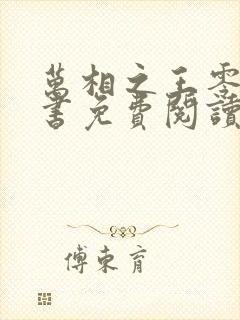 萬相之王零
書免費閱讀
傅東育